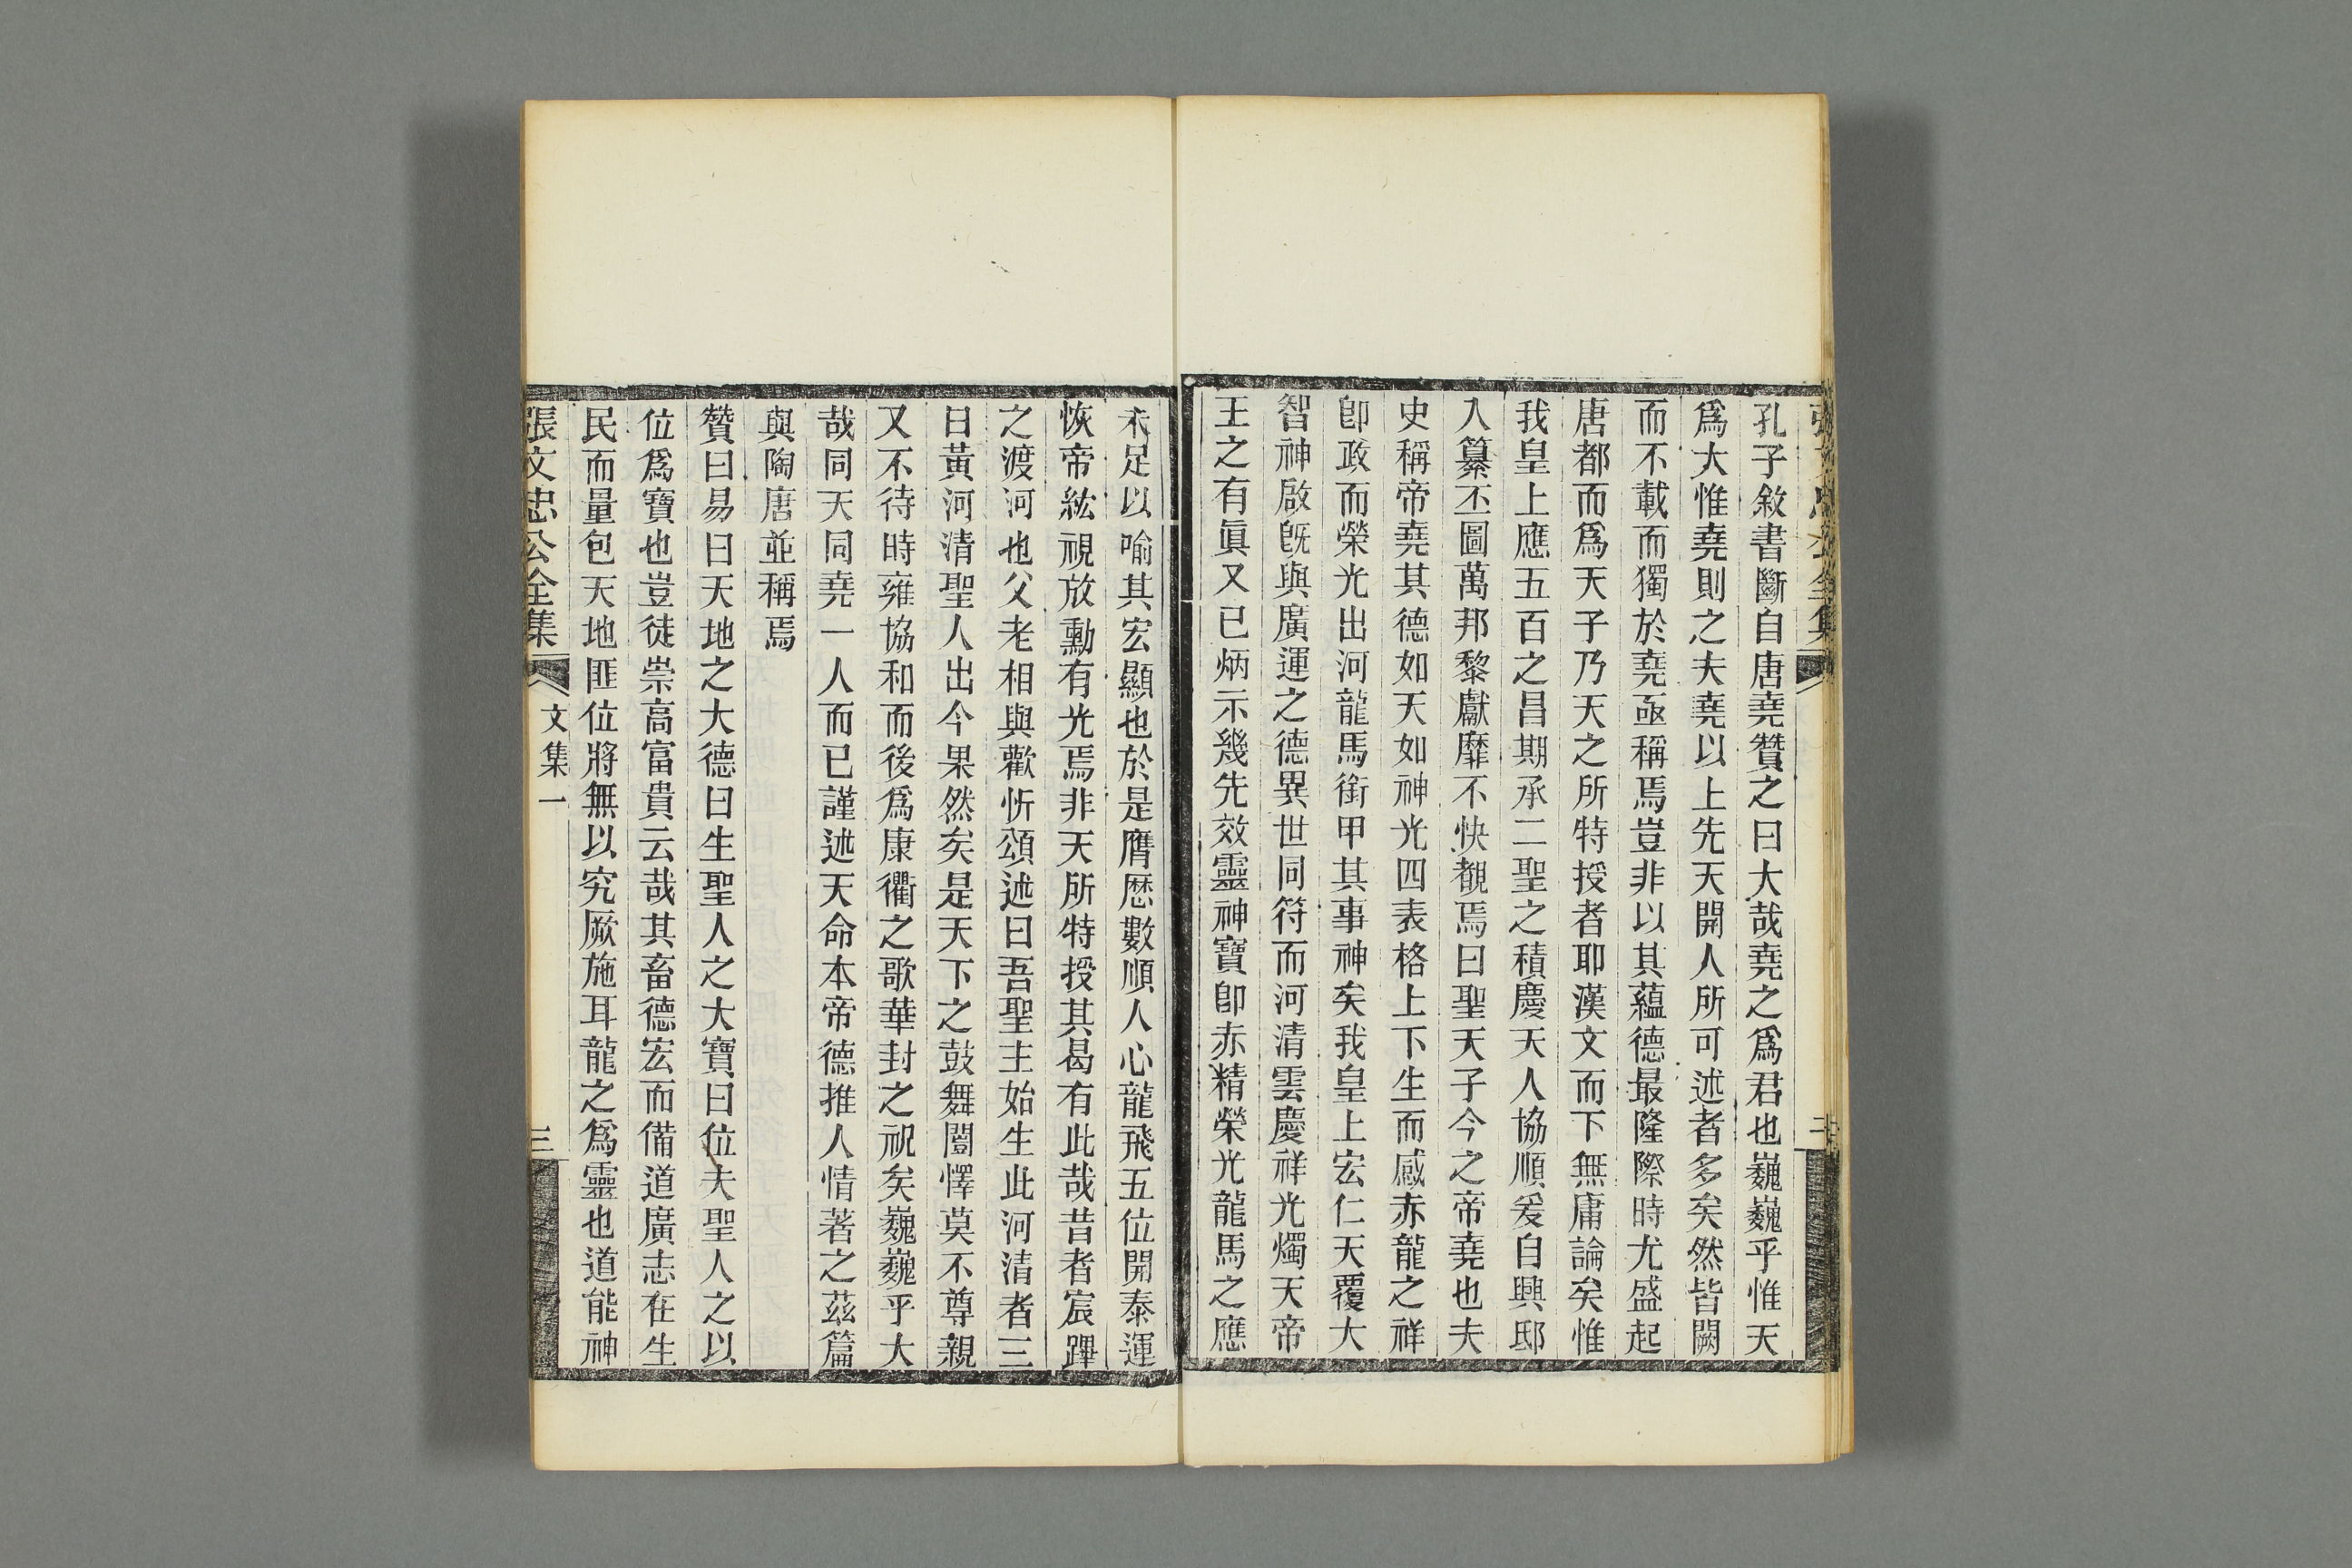 孔子敘書斷自唐堯贊之曰大哉堯之爲君也巍巍乎惟天
爲大惟堯則之夫堯以上先天開人所可述者多矣然皆闕
而不載而獨於堯亟稱焉豈非以其蘊德最隆際時尤盛起
唐都而爲天子乃天之所特授者耶漢文而下無庸論矣惟
我皇上應五百之昌期承二聖之積慶天人協順爰自興邸
入纂丕圖萬邦黎獻靡不快覩焉曰聖天子今之帝堯也夫
史稱帝堯其德如天如神光四表格上下生而感赤龍之祥
卽政而榮光出河龍馬銜甲其事神矣我皇上宏仁天覆大
智神啟旣與廣運之德異世同符而河清雲慶祥光燭天帝
王之有眞又已炳示幾先效靈神寶卽赤精榮光龍馬之應
未足以喻其宏顯也於是膺歴數順人心龍飛五位開泰運
恢帝紘視放勳有光焉非天所特授其曷有此哉昔者宸蹕
之渡河也父老相與歡忻頌述曰吾聖主始生此河清者三
日黃河清聖人出今果然矣是天下之鼓舞闓懌莫不尊親
又不待時雍協和而後爲康衢之歌華封之祝矣巍巍乎大
哉同天同堯一人而已謹述天命本帝德推人情著之茲篇
與陶唐並稱焉
贊曰易曰天地之大德曰生聖人之大寶曰位夫聖人之以
位爲寶也豈徒崇高富貴云哉其畜德宏而備道廣志在生
民而量包天地匪位將無以究厥施耳龍之爲靈也道能神
張文忠公全集
文集一
三